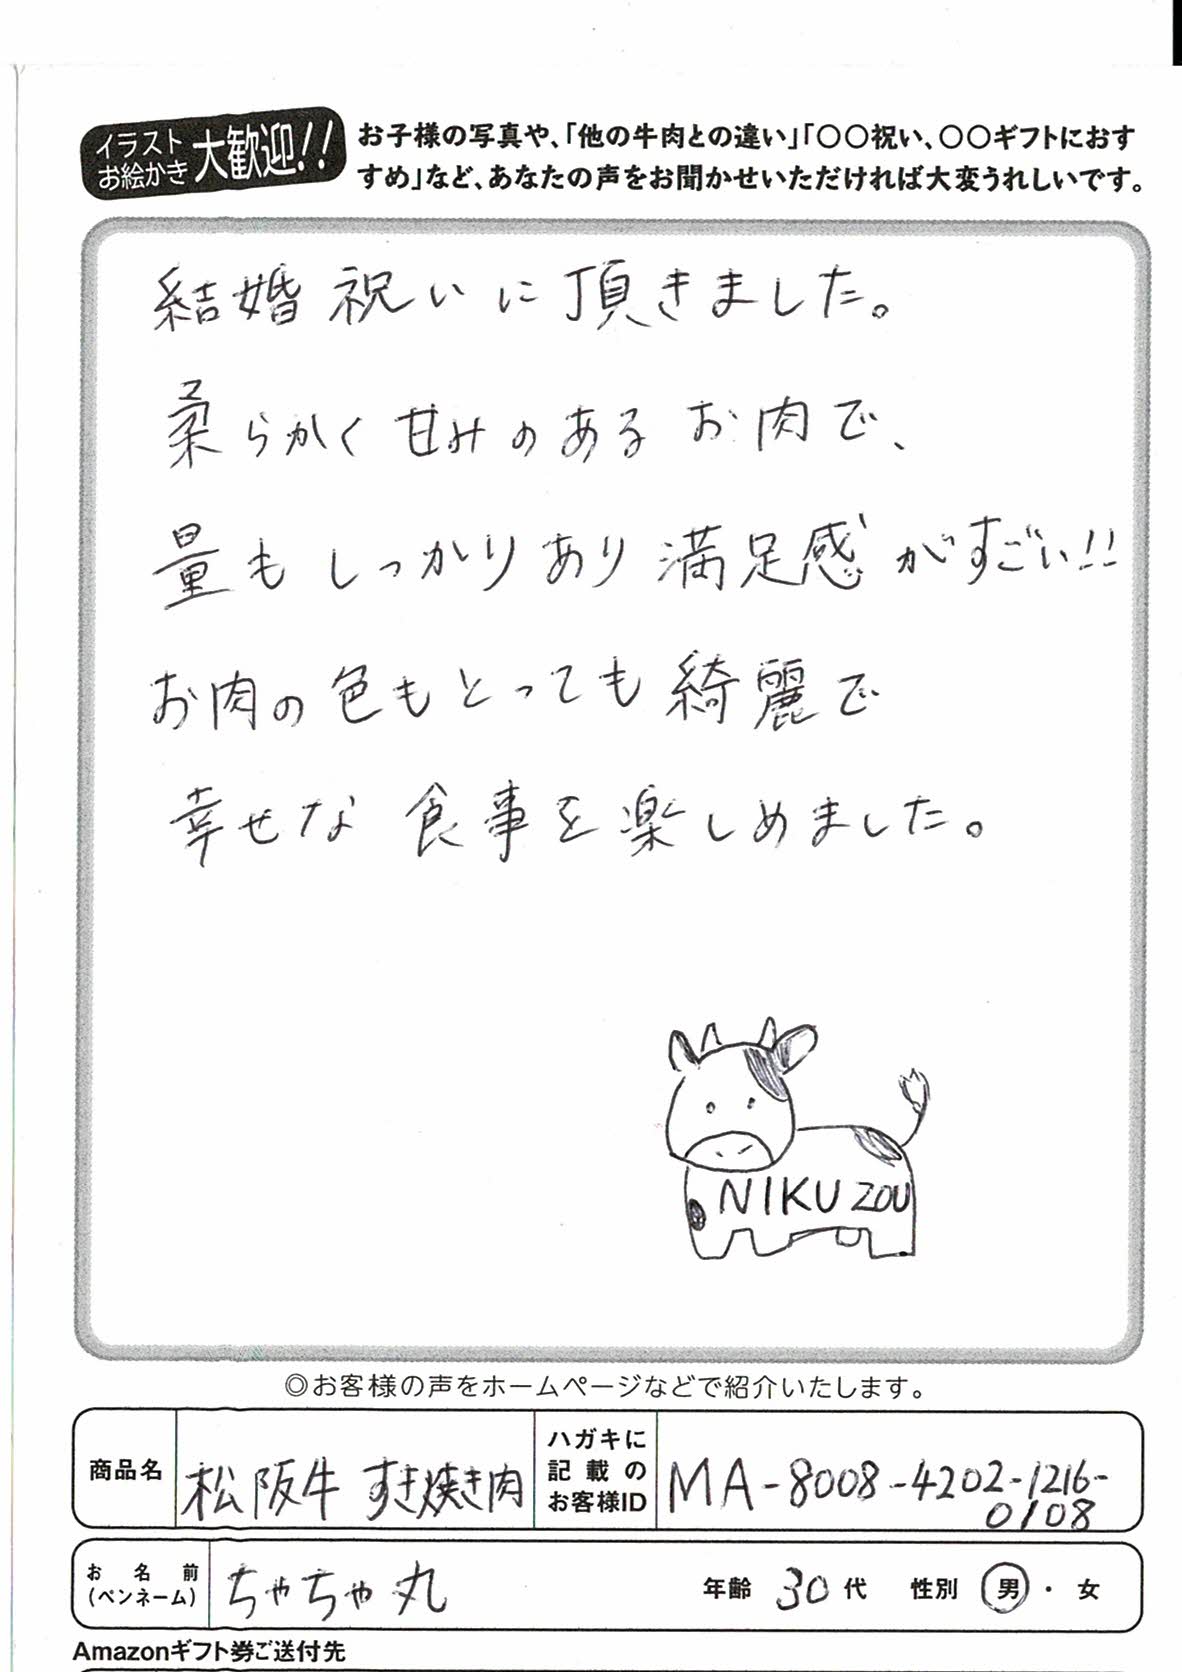 イラスト
お絵かき 大歓迎!!
お子様の写真や、「他の牛肉との違い」「〇〇祝い、〇〇ギフトにおす
すめ」など、あなたの声をお聞かせいただければ大変うれしいです。
結婚祝いに頂きました。
柔らかく甘みのあるお肉で、
量もしっかりあり満足感がすごい!!
お肉の色もとっても綺麗で
幸せな食事を楽しめました。
NIKUZOU
◎お客様の声をホームページなどで紹介いたします。
商品名 松阪牛 すき焼き肉
ハガキに
記載の
お客様ID
MA-8008-4202-1216-
0108
お名前
(ペンネーム)
ちゃちゃ丸
年齢 30代 性別 男・女
Amazonギフト券ご送付先